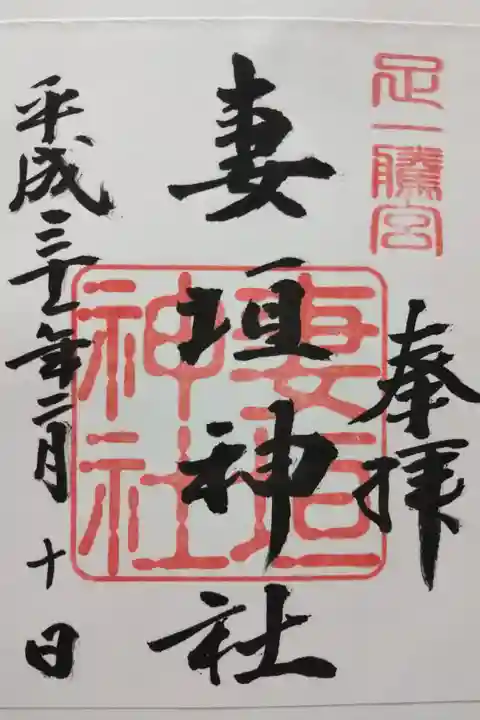 足一騰宮
奉拝
妻垣神社
妻垣神社
平成三十一年二月十日